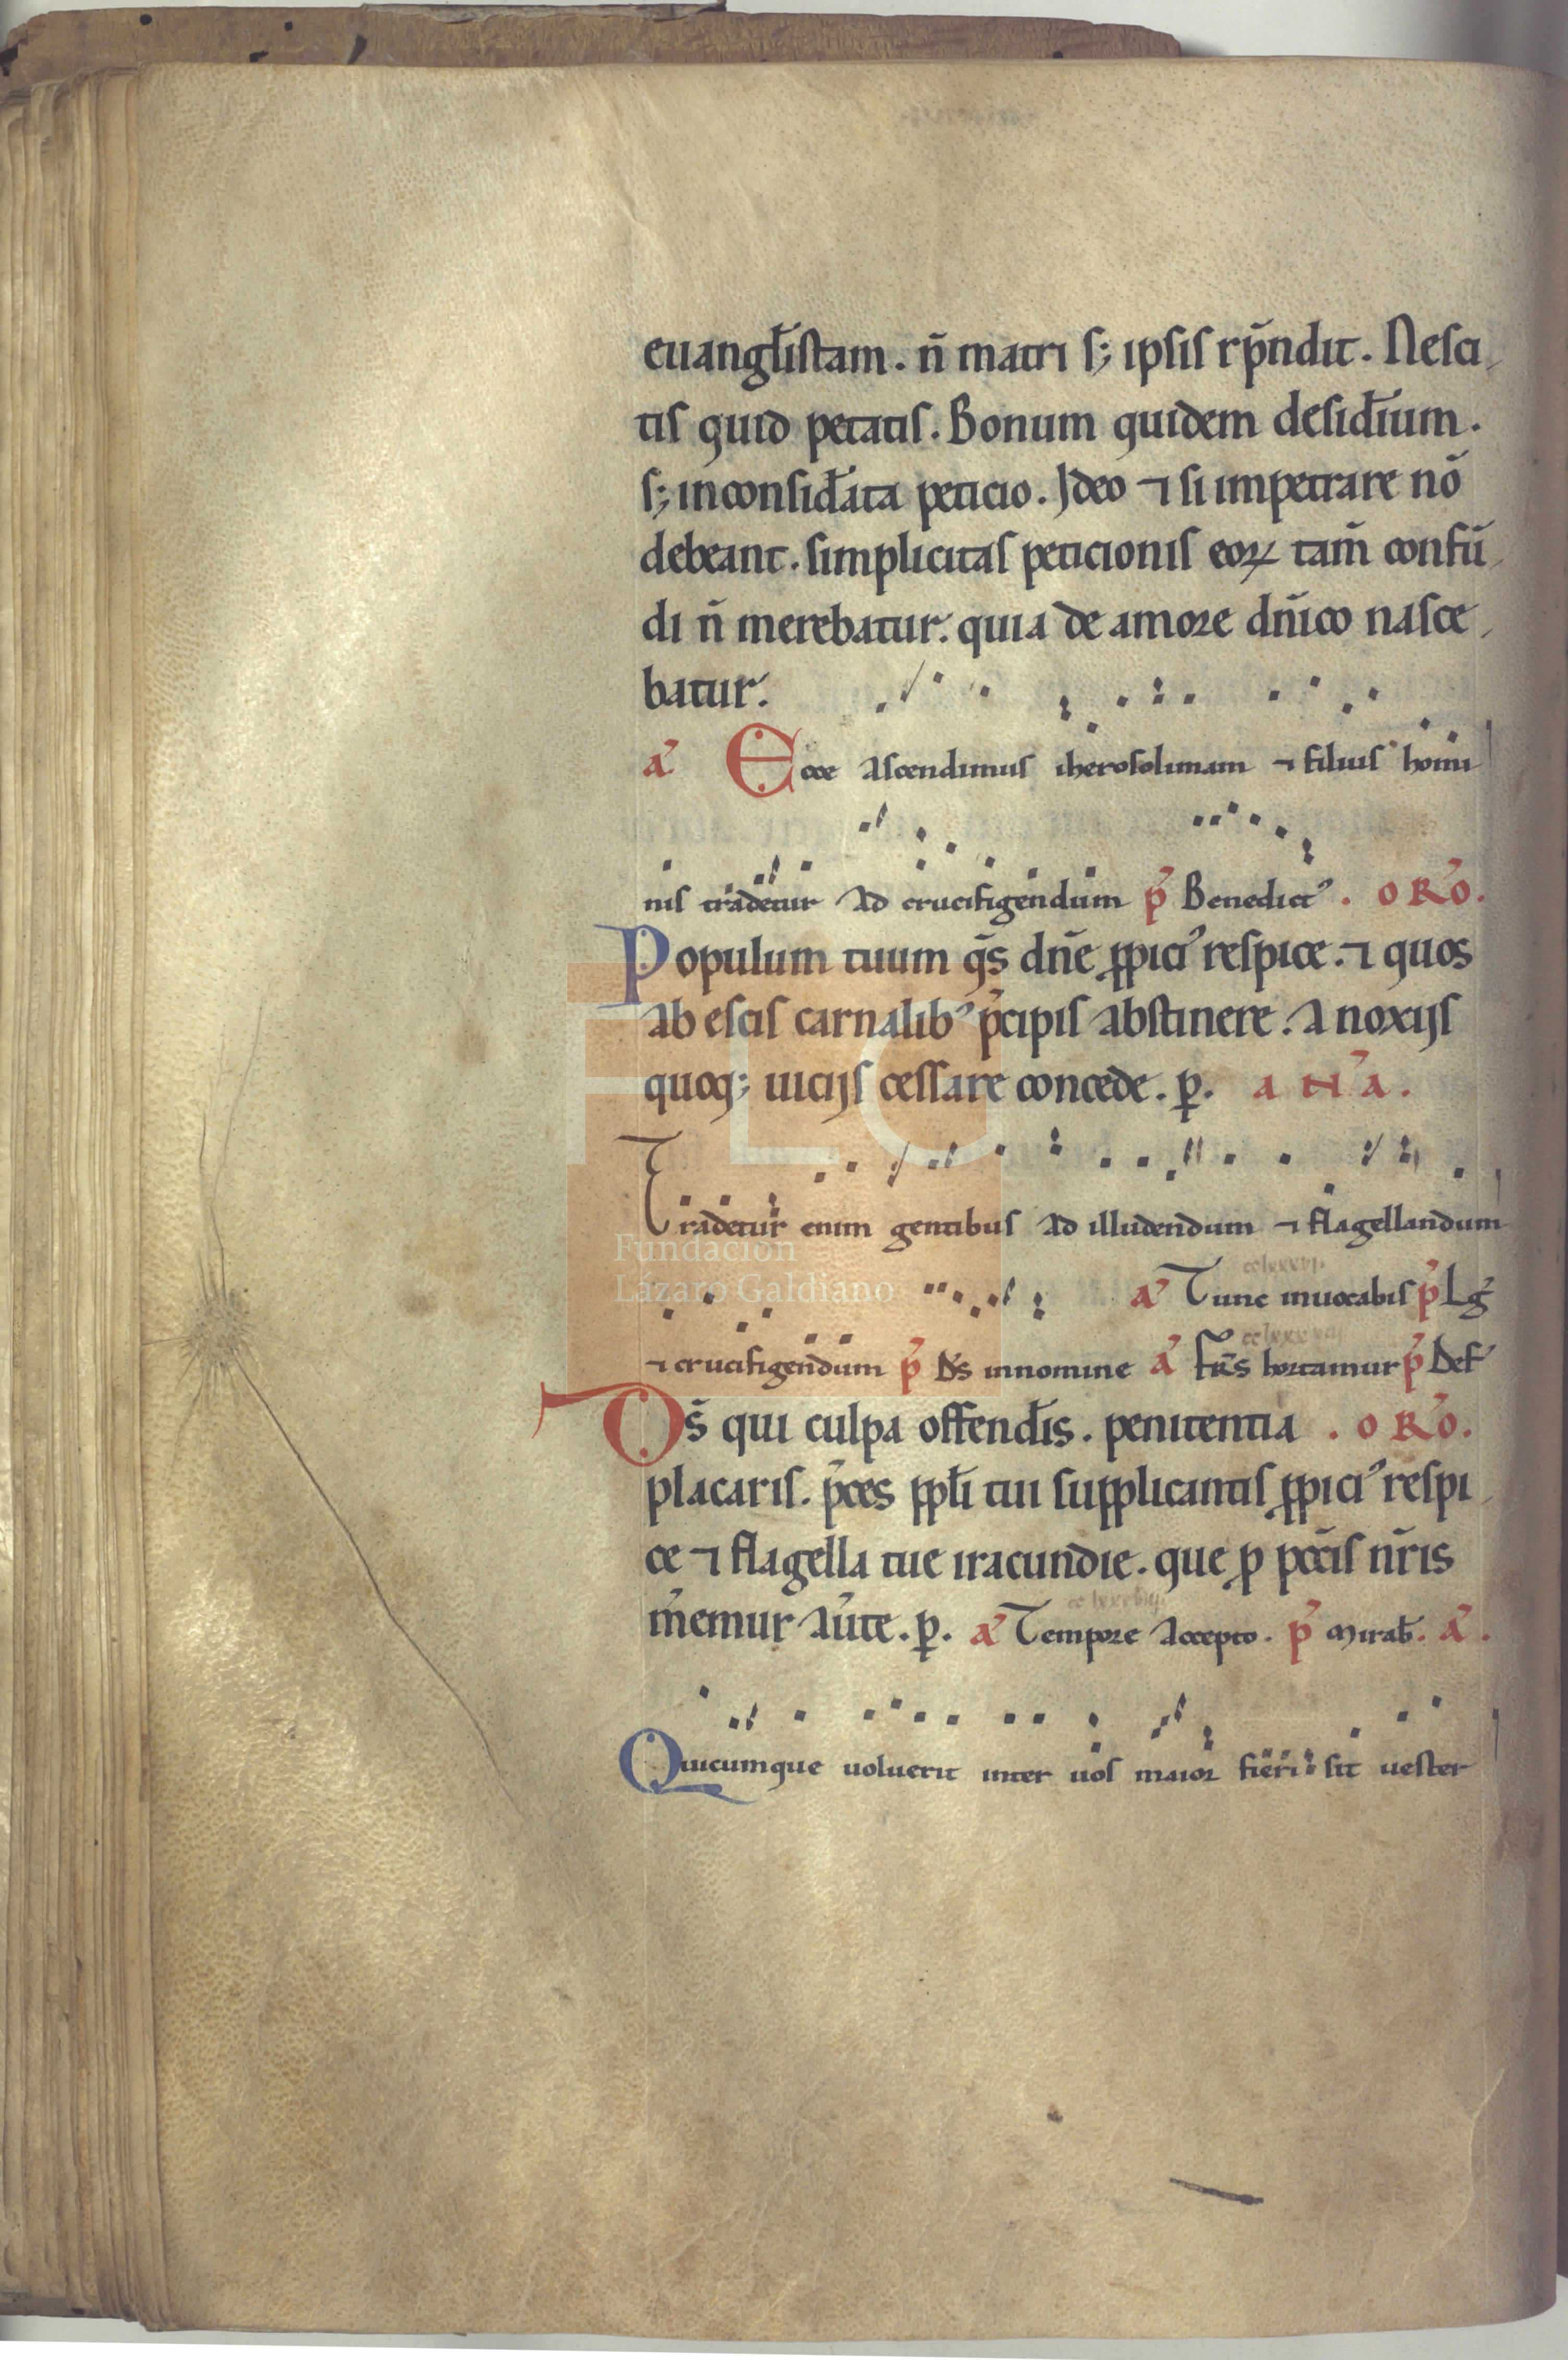 euangłistam. n̄ matri ſ; ipſiſ rp̄ndit. Neſci
tiſ quid petatiſ. Bonum quidem deſiđium.
ſ; inconſiđata peticio. Ideo ⁊ ſi impetrare nō
debeant. ſimplicitaſ peticioniſ eoꝝ tam̄ confū
di n̄ merebatur. quia de amore dn̄ico naſce
batur.
a᷒ Ecce aſcendimuſ iheroſolimam ⁊ filiuſ homi
niſ tradetur ad crucifigendum p᷒ Benedict᷒. ORO.
Populum tuum qs̄ dn̄e ꝓpici᷒ reſpice. ⁊ quos
ab eſciſ carnalib᷒ p̄cipiſ abſtinere. a noxijſ
quoq; uicijſ ceſſare concede. ꝑ. ANA.
Tradetur enim gentibuſ ad illudendum ⁊ flagellandum
Fundación
Lázaro Galdiano
a᷒ Tunc inuocabiſ p᷒ Lg᷒
⁊ crucifigendum p᷒ Ds̄ innomine a᷒ Fr̄s hortamur p᷒ Def᷒
Ds̄ qui culpa offenđis. penitentia . ORO.
placariſ. p̄ces ppłi tui ſupplicantiſ ꝓpici᷒ reſpi
ce ⁊ flagella tue iracundie. que ꝓ pcc̄iſ nr̄is
m̄emur aūte. ꝑ. a᷒ Tempore accepto. p᷒ Mirab̄. a᷒.
Quicumque uoluerit inter uoſ maior fieri ſit ueſter